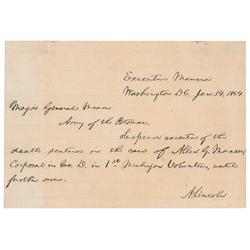 Executive Mansion
Washington D.C. Jan. 14, 1864
Major General Meade
Army of the Potomac.
Suspend execution of the
death sentence in the case of Allen G. Maxson
Corporal in Co. D. in 1st Michigan Volunteers, until
further order.
A. Lincoln